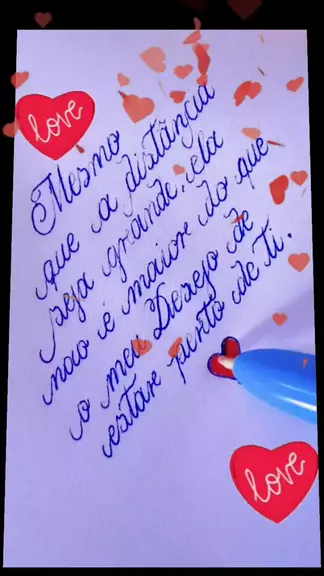 love
Mesmo
que a distância
seja grande, ela
nao é maior do que
o meu Desejo de
estar perto de ti.
love